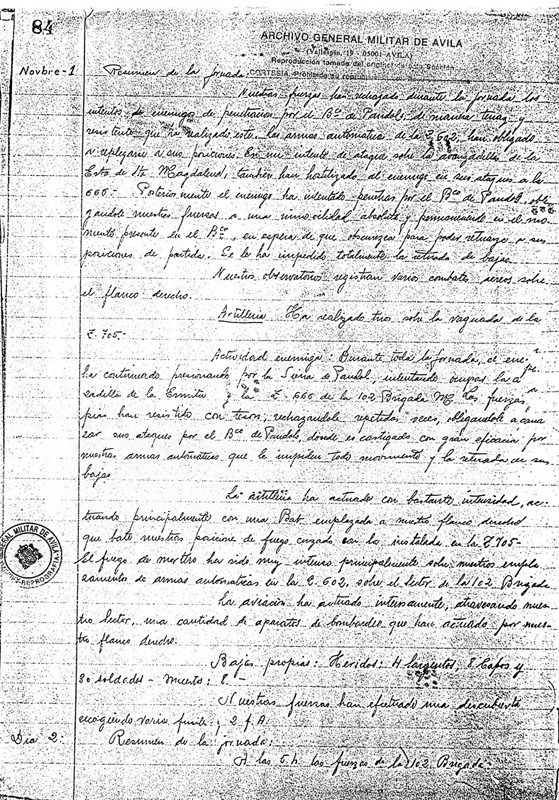 84
ARCHIVO GENERAL MILITAR DE AVILA
(Vallespín, 19 - 05001 AVILA)
Reproducción tomada del original de esta Sección
CORTESIA. Prohibida su reproducción
Novbre-1
Resumen de la jornada:
Nuestras fuerzas han rechazado durante la jornada los
intentos del enemigo de penetracion por el Bco de Pandols, de manera tenaz y
resistente que ha realizado este. Las armas automaticas de la Z.602, han obligado
a replegarse a sus posiciones. En su intento de ataque sobre la avanzadilla de la
Erta de Sta Magdalena, tambien han hostilizado al enemigo en sus ataques a la
666- Posteriormente el enemigo ha intentado penetrar por el Bco de Pandols, obli-
gandole nuestras fuerzas a una inmovilidad absoluta y permaneciendo en el mo-
mento presente en el Bco, en espera de que obscurezca para poder retirarse a sus
posiciones de partida. Se le ha impedido totalmente la retirada de bajas.
Nuestros observatorios registran varios combates aereos sobre
el flanco derecho.
Artilleria: Ha realizado tiro sobre la vaguada de la
Z.705-
Actividad enemiga: Durante toda la jornada, el ene-
ha continuado presionando por la Sierra de Pandols, intentando ocupar la a
cadilla de la Ermita y la Z.666 de la 102 Brigada. Las fuerzas
pias han resistido con teson, rechazandole repetidas veces, obligandole a
sus ataques por el Bco de Pandols, donde es castigado con gran eficacia por
nuestras armas automaticas, que le impiden todo movimiento y la retirada de sus
bajas
La artilleria ha actuado con bastante intensidad, ac-
tuando principalmente con una Bat. emplazada a nuestro flanco derecho
que bate nuestras posiciones de fuego cruzado con la instalada en la Z.705-
El fuego de mortero ha sido muy intenso principalmente sobre nuestros empla
zamientos de armas automaticas en la Z.602, sobre el sector de la 102 Brigada
La aviacion ha actuado intensamente, atravesando nues-
tro sector, una cantidad de aparatos de bombardeo que han actuado por nues-
tro flanco derecho.
Bajas propias: Heridos: 4 sargentos, 8 Cabos y
30 soldados - Muertos: 8.-
Nuestras fuerzas han efectuado una descubierta
recogiendo varios fusiles y 2 f.A.
Dia 2:
Resumen de la jornada:
A las 5 h. las fuerzas de la 102 Brigada